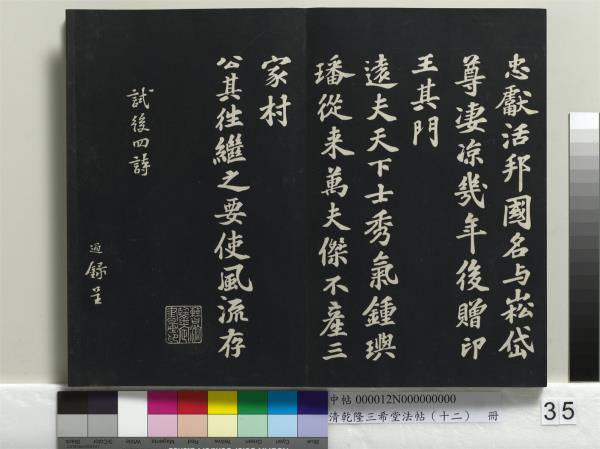 忠獻活邦國名与崧岱
尊凄凉幾年後贈印
王其門
遠夫天下士秀氣鍾璵
璠從来萬夫傑不產三
家村
公其往繼之要使風流存
試後四詩
過錄呈
中帖 000012N000000000
清乾隆三希堂法帖(十二) 冊
35